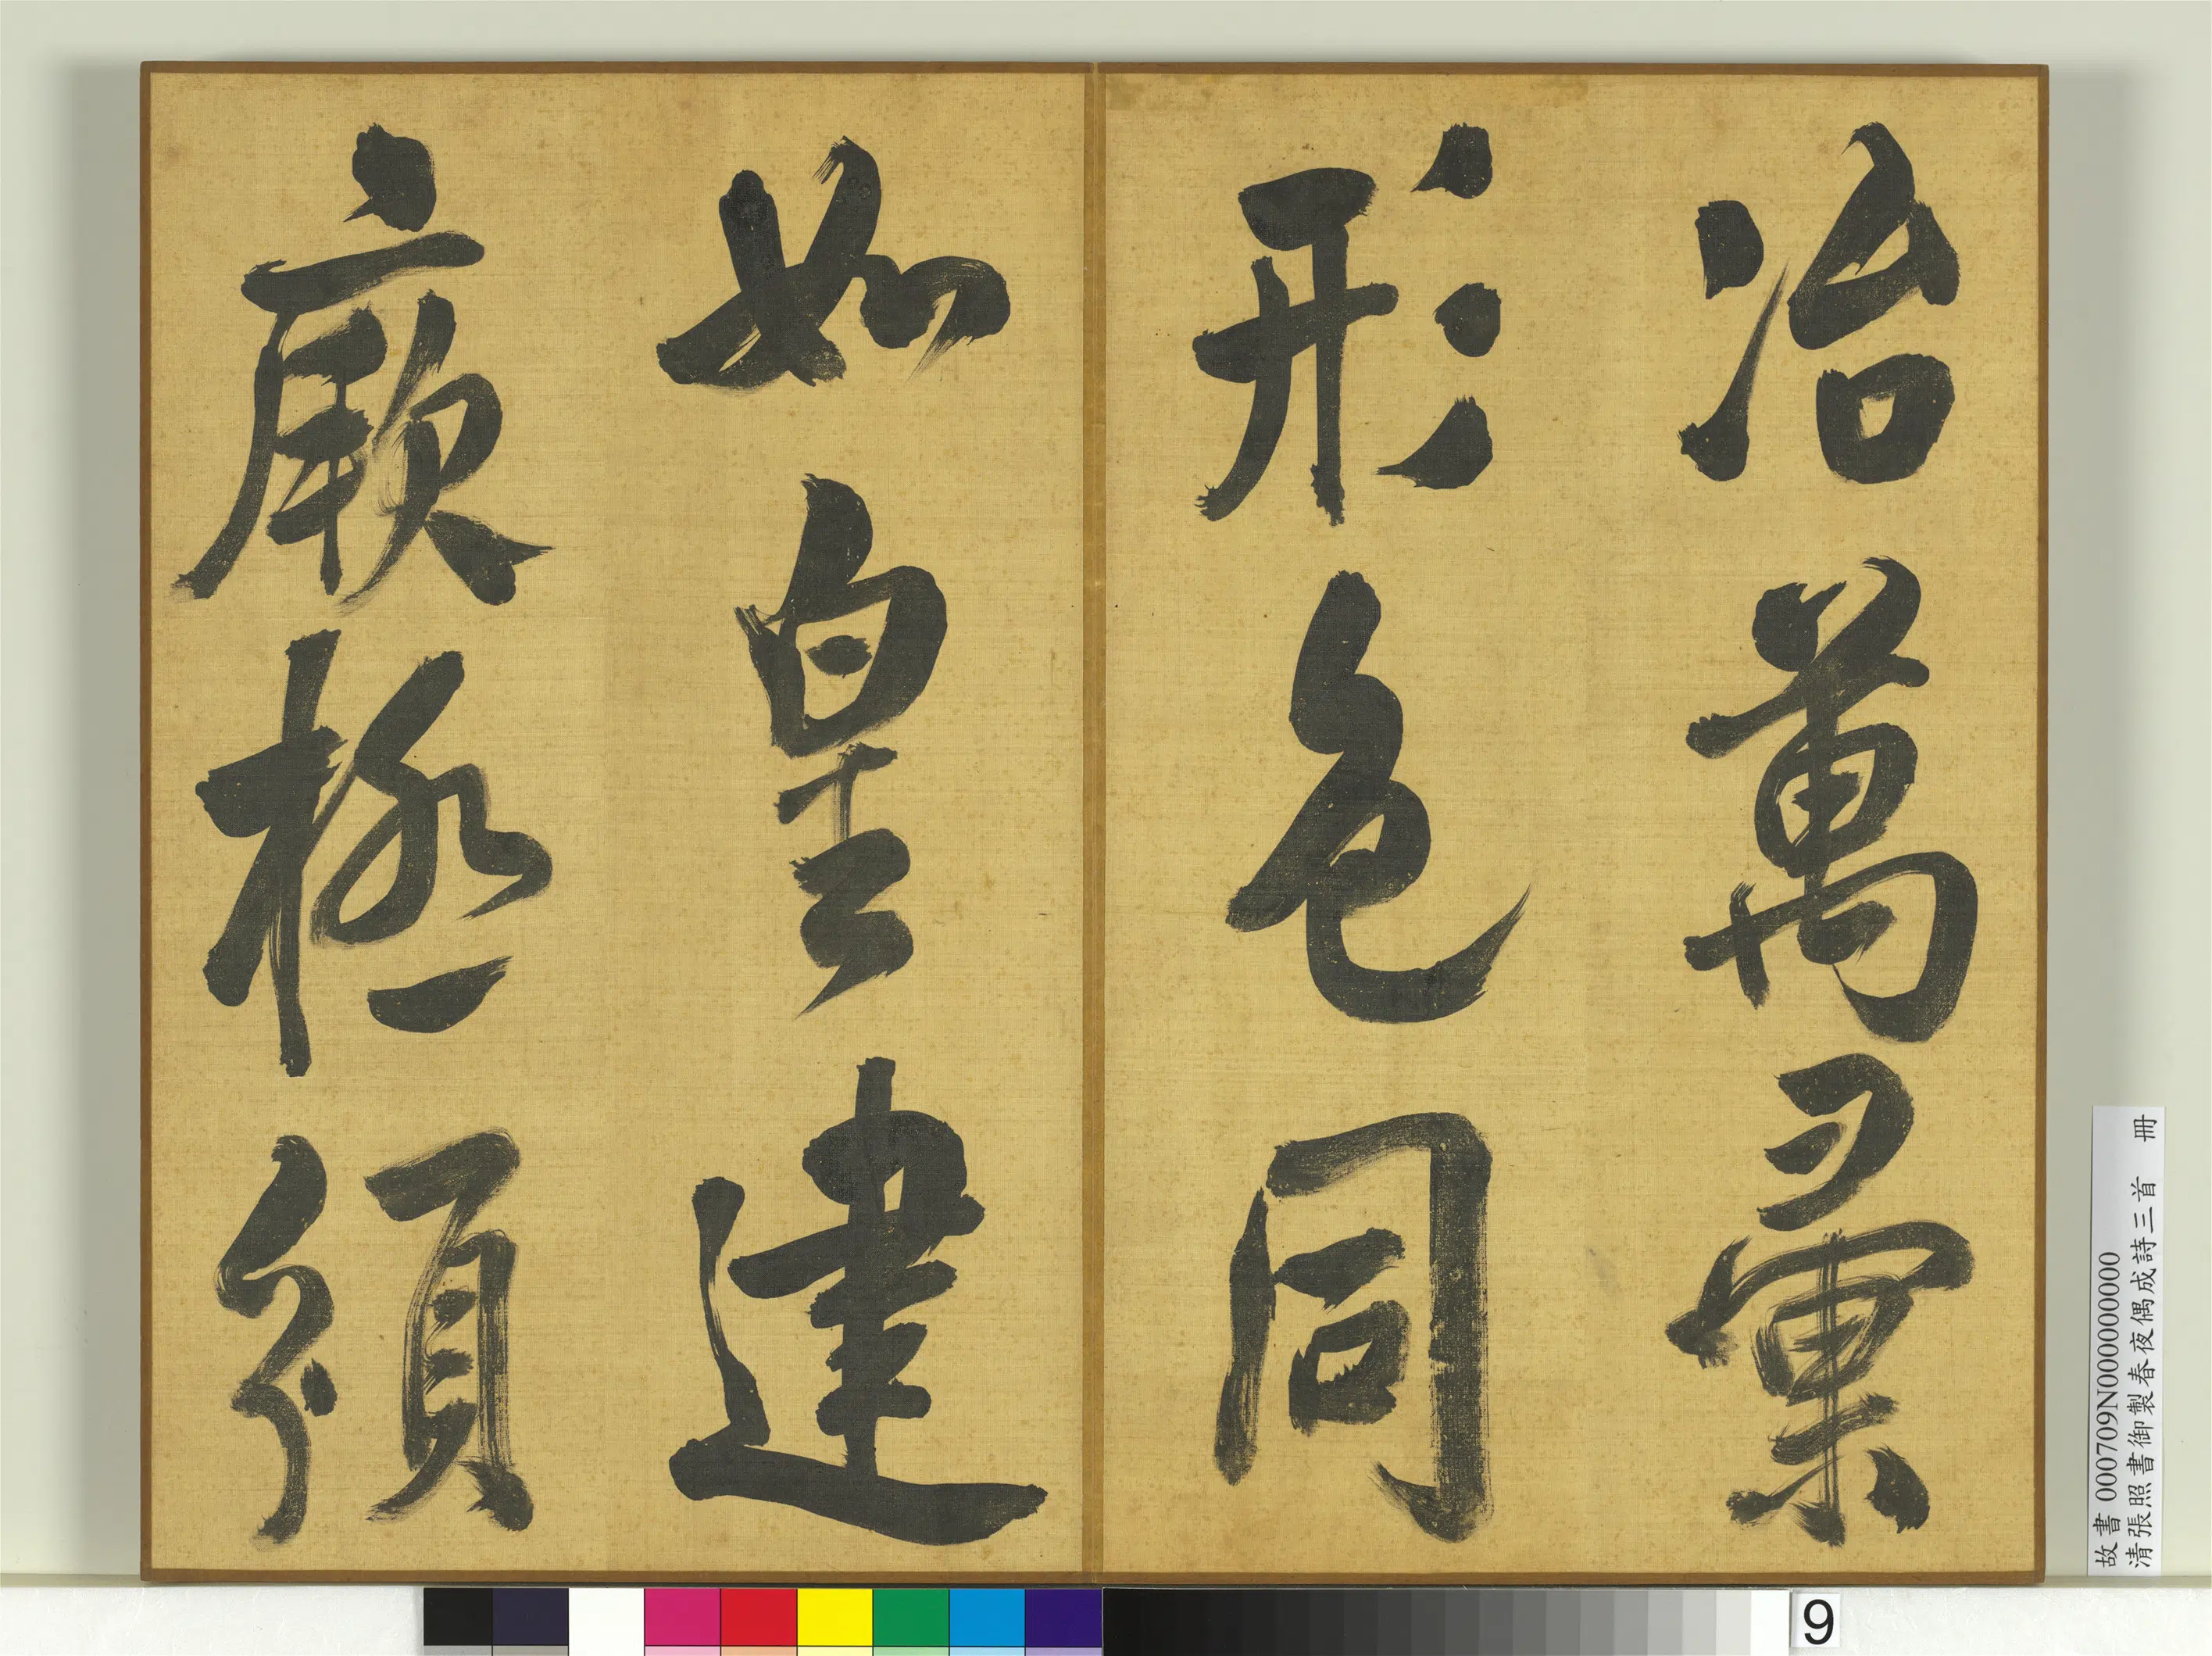 冶萬彙
形色同
如皇建
厥極
故書 000709N000000000
清張照書御製春夜偶成詩三首　冊
9